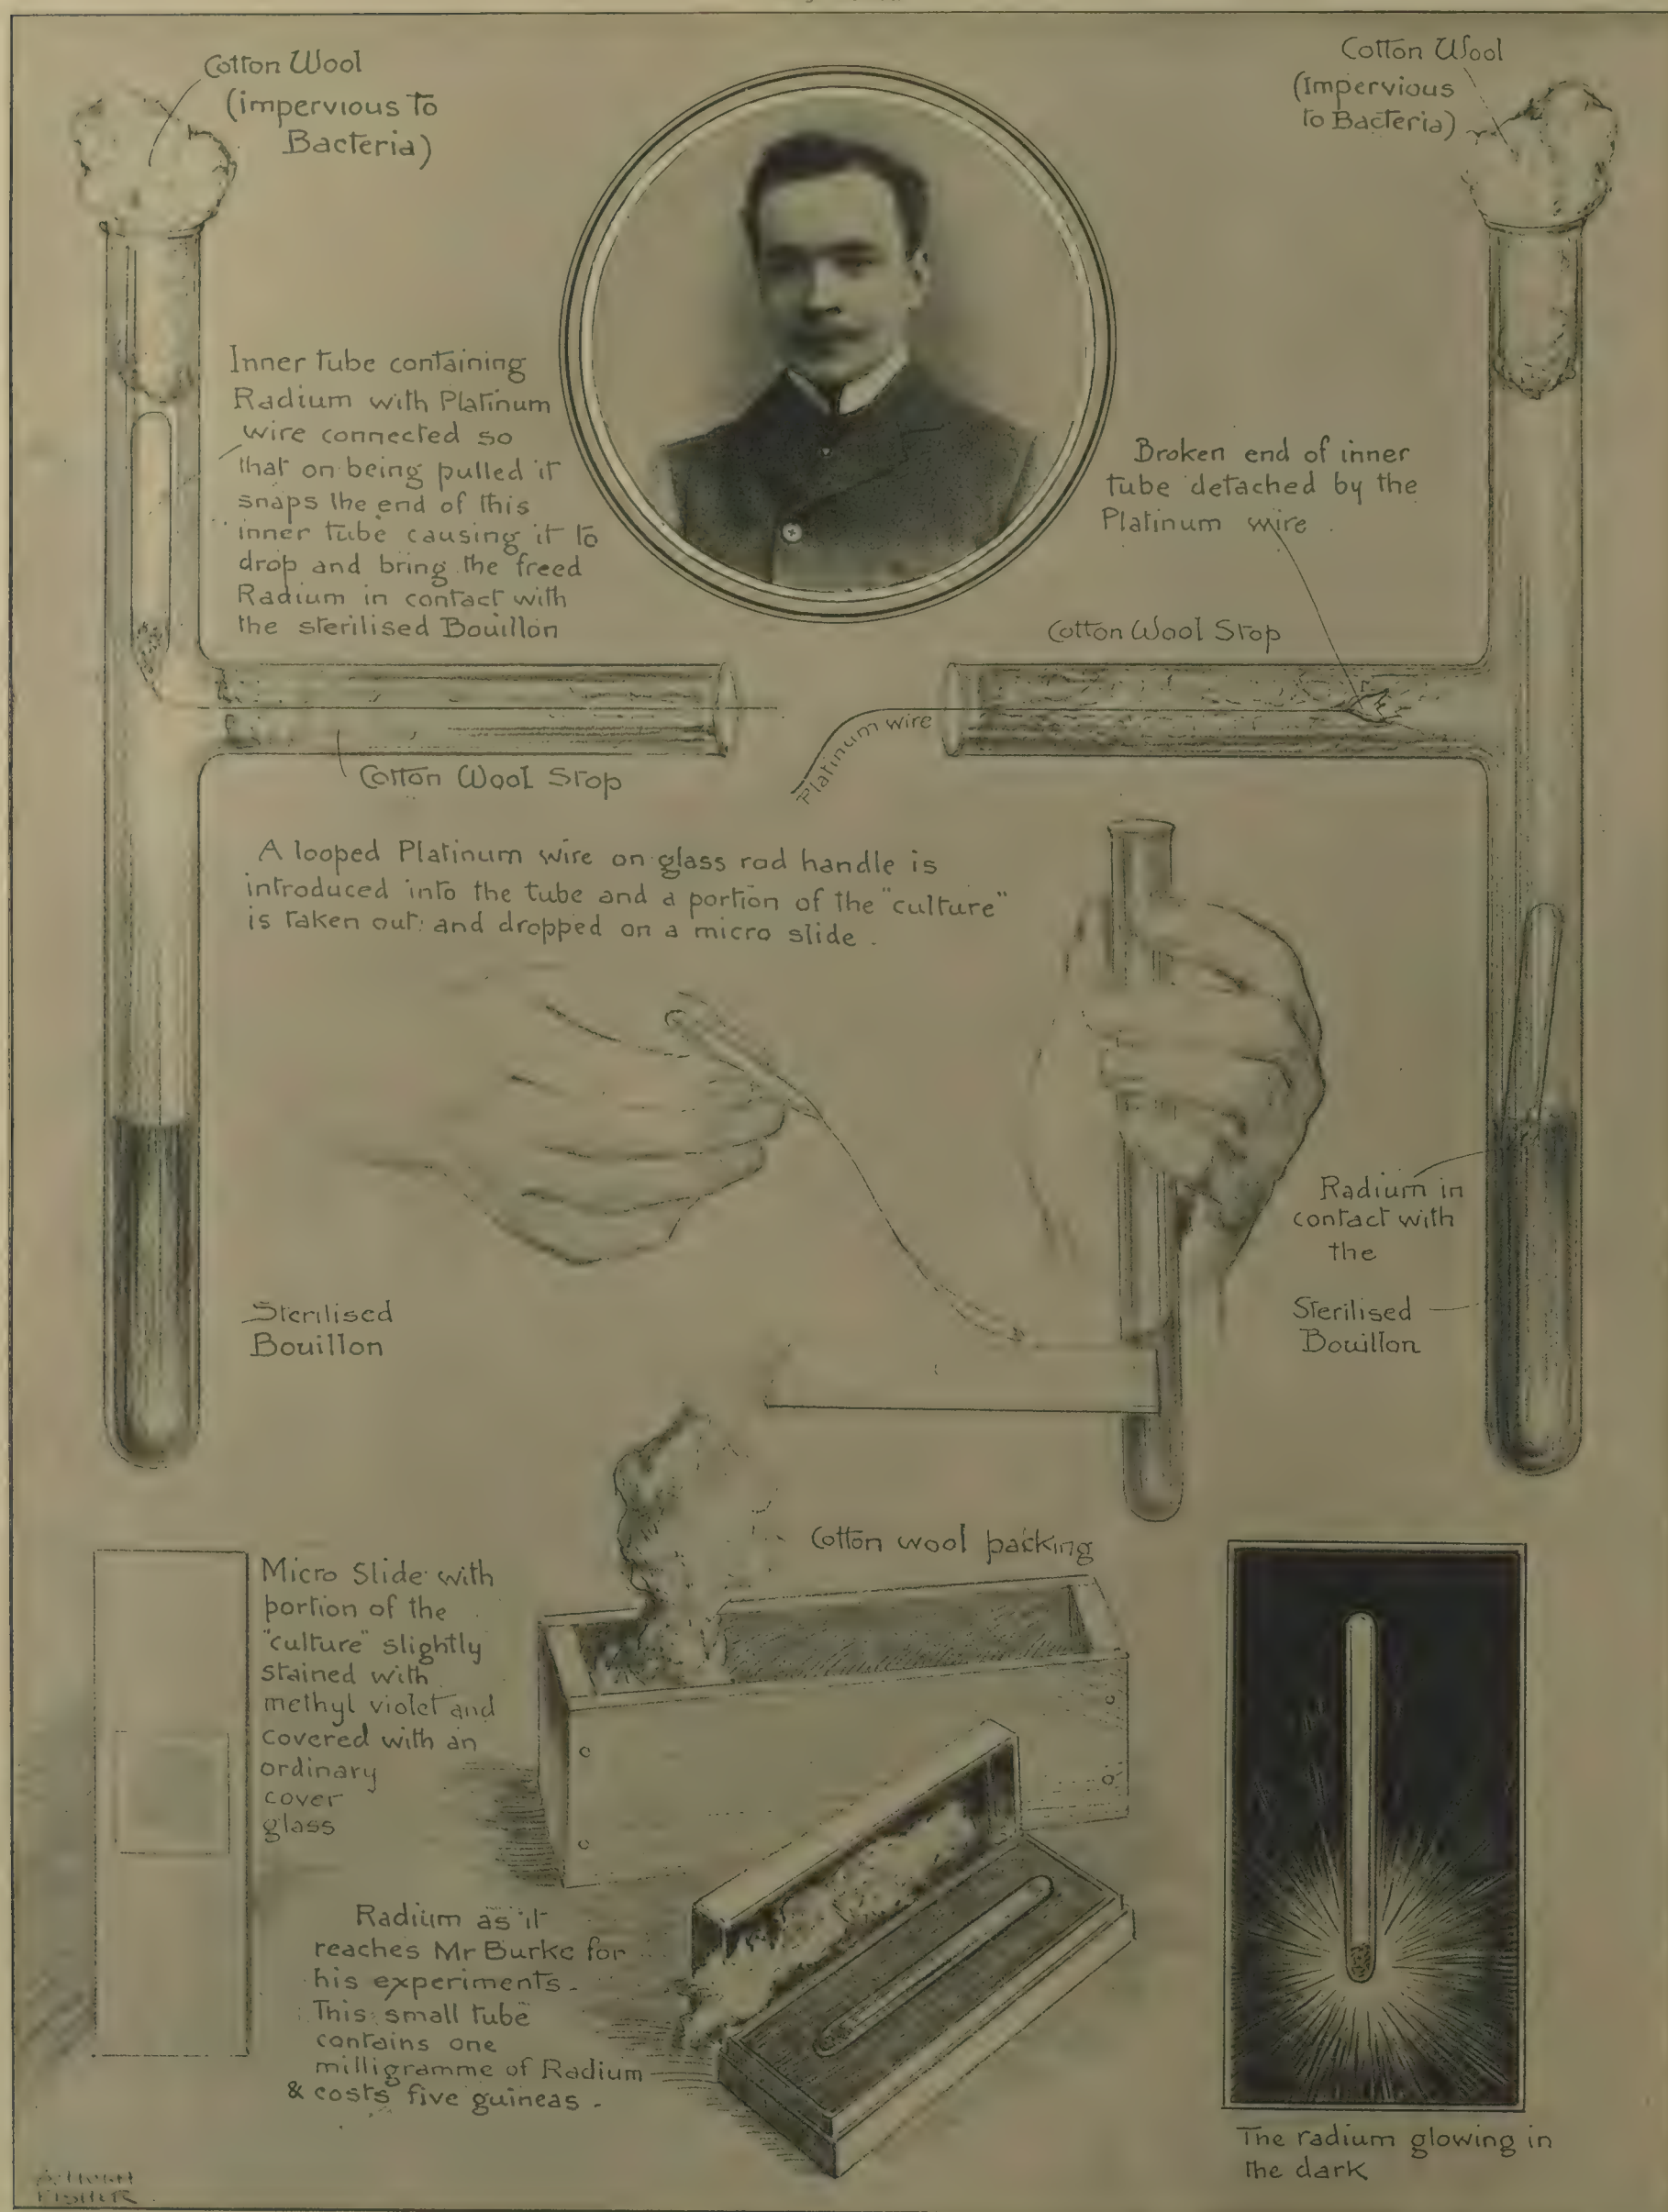 Cotton Wool
(impervious to
Bacteria)
Cotton Wool
(Impervious
to Bacteria)
Inner tube containing
Radium with Platinum
wire connected so
that on being pulled it
snaps the end of this
inner tube causing it to
drop and bring the freed
Radium in contact with
the sterilised Bouillon
Broken end of inner
tube detached by the
Platinum wire
Cotton Wool Stop
Platinum wire
Cotton Wool Stop
A looped Platinum wire on glass rod handle is
introduced into the tube and a portion of the "culture"
is taken out: and dropped on a micro slide.
Radium in
contact with
the
Sterilised
Bouillon
Sterilised
Bouillon
Cotton wool packing
Micro Slide with
portion of the
"culture" slightly
stained with
methyl violet and
covered with an
ordinary
cover
glass
Radium as it
reaches Mr Burke for
his experiments.
This small tube
contains one
milligramme of Radium
& costs five guineas.
The radium glowing in
the dark
FISHER